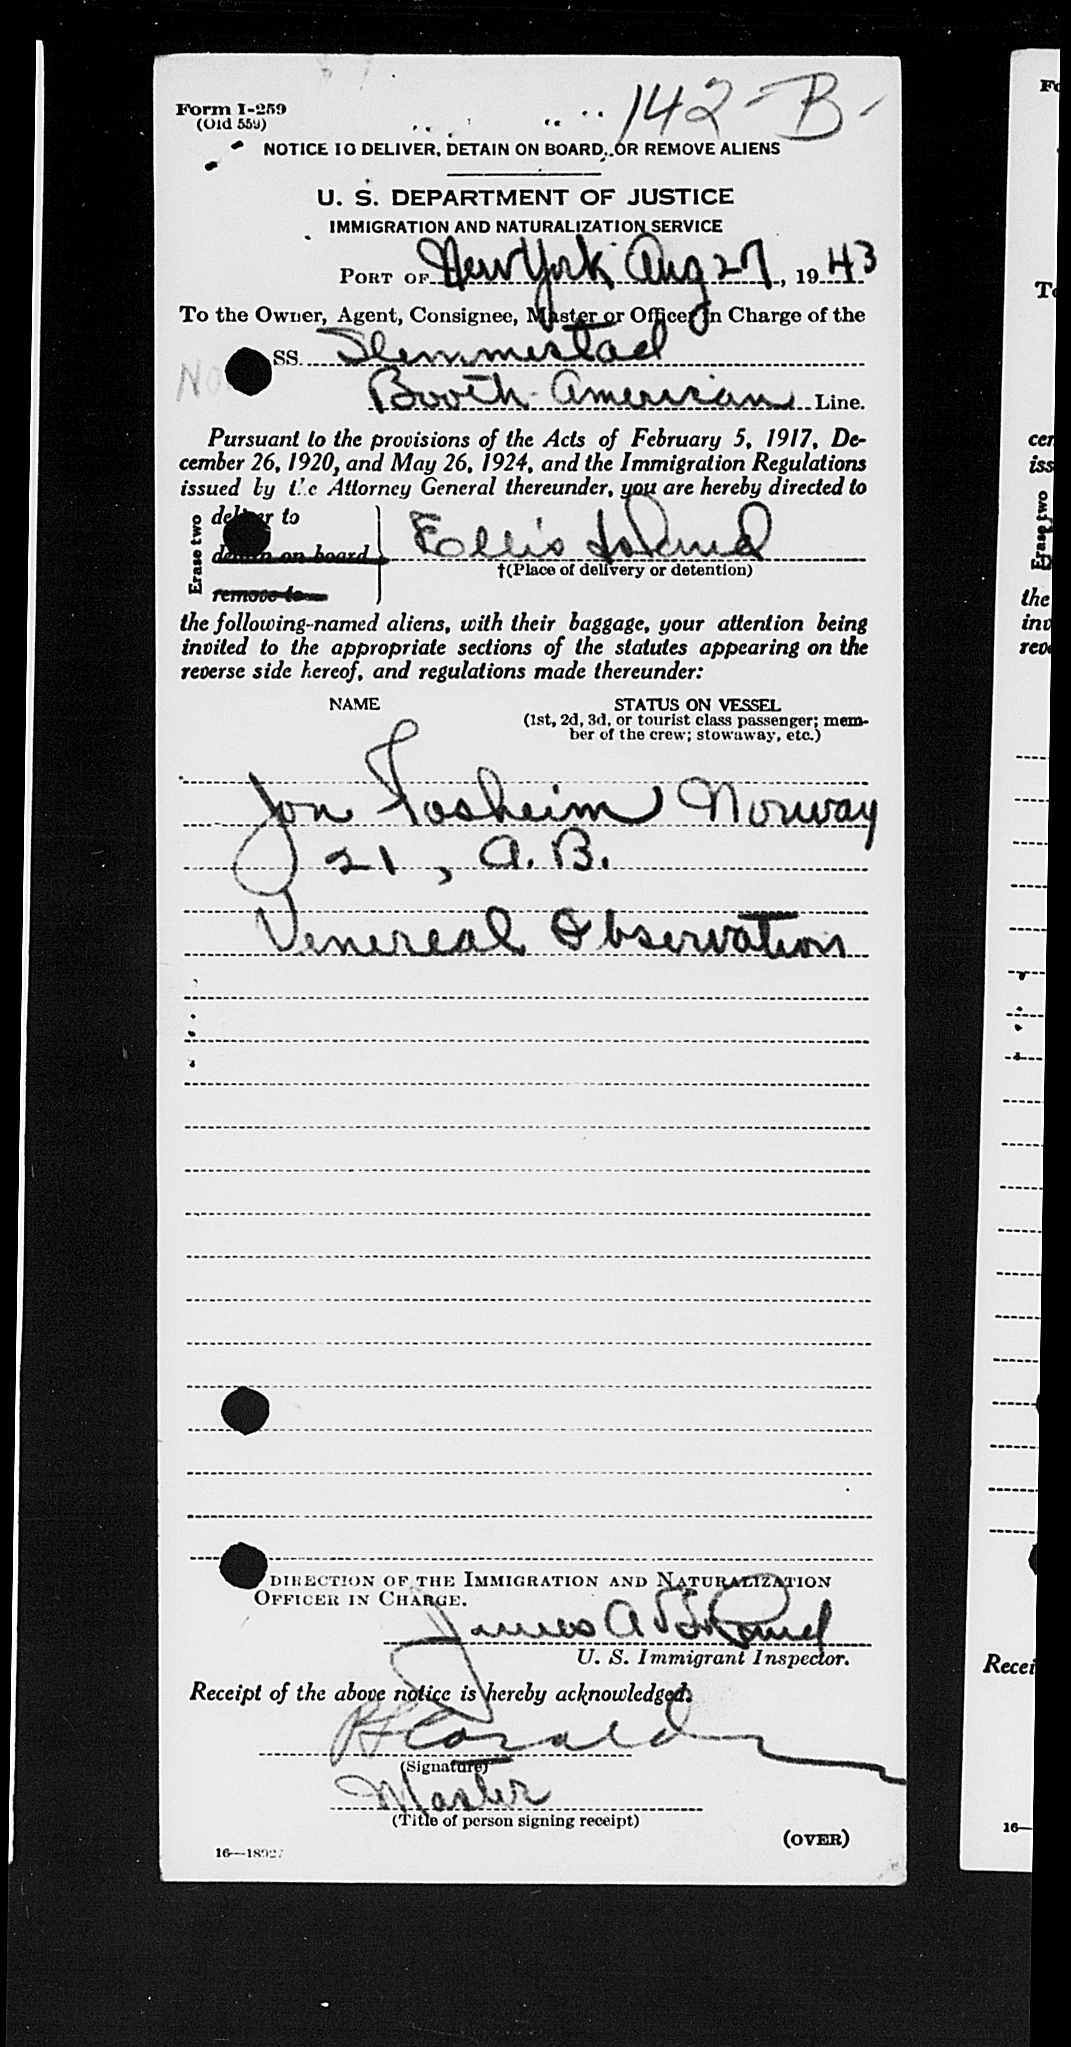 142-B-
Form I-259
(Old 559)
NOTICE TO DELIVER, DETAIN ON BOARD, OR REMOVE ALIENS
U. S. DEPARTMENT OF JUSTICE
IMMIGRATION AND NATURALIZATION SERVICE
PORT OF New York Aug 27, 1943
To the Owner, Agent, Consignee, Master or Officer in Charge of the
SS. Slemmestad
Booth-American Line.
Pursuant to the provisions of the Acts of February 5, 1917, De-
cember 26, 1920, and May 26, 1924, and the Immigration Regulations
issued by the Attorney General thereunder, you are hereby directed to
Erase two
deliver to
detain on board
remove to
Ellis Island
†(Place of delivery or detention)
the following-named aliens, with their baggage, your attention being
invited to the appropriate sections of the statutes appearing on the
reverse side hereof, and regulations made thereunder:
NAME STATUS ON VESSEL
(1st, 2d, 3d, or tourist class passenger; mem-
ber of the crew; stowaway, etc.)
Jon Fosheim Norway
21, A.B.
Venereal Observation
DIRECTION OF THE IMMIGRATION AND NATURALIZATION
OFFICER IN CHARGE.
James A
U. S. Immigrant Inspector.
Receipt of the above notice is hereby acknowledged.
(Signature)
Master
(Title of person signing receipt)
(OVER)
16—18927